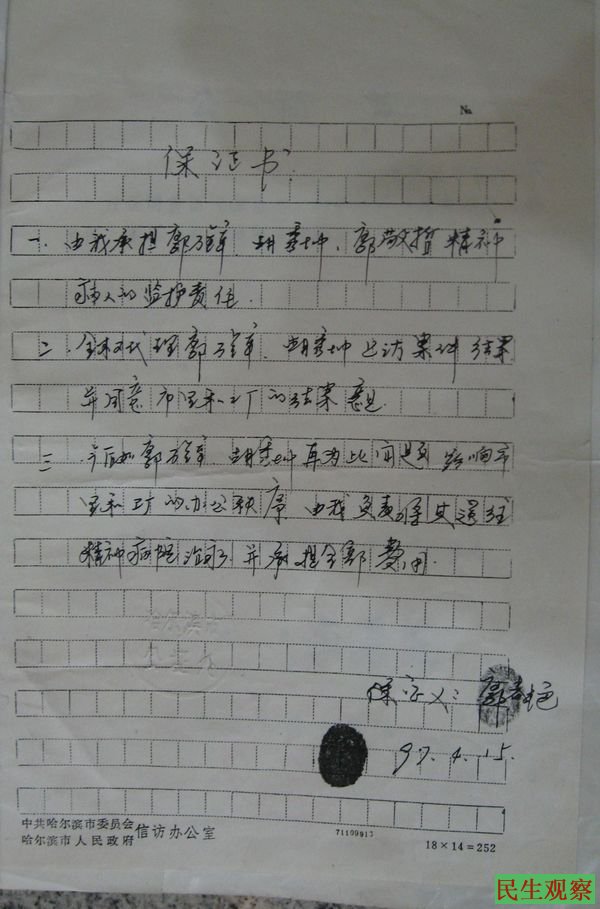 №
保证书
一、由我承担郭 、胡 坤、郭敬哲精神
病人的监护责任.
二、 代理郭 、胡 坤上访案件结果
并同意市里和工厂的结案意见
三、今后如郭 胡 坤再为此问题影响市
里和工厂的办公秩序 由我负责将其送往
精神病院治疗 并承担全部费用.
保证人:郭 艳
97.4.15.
中共哈尔滨市委员会
哈尔滨市人民政府
信访办公室
18×14=252
民生观察